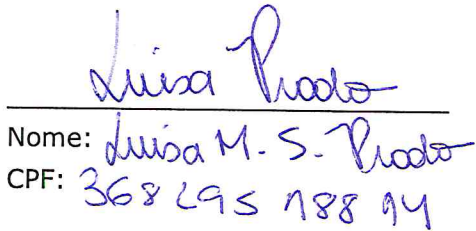 Luisa Prado
Nome: Luisa M. S. Prado
CPF: 368 295 188 14